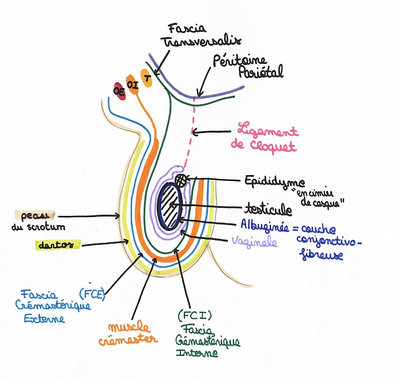 Fascia
Transversalis
Péritoine
Pariétal
OE
OI
T
Ligament
de Cloquet
Epididyme "en cimier
de casque"
testicule
Albuginée = couche
conjonctivo-
fibreuse
vaginale
peau
du scrotum
dartos
Fascia (FCE)
Crémastérique
Externe
muscle
crémaster
(FCI)
Fascia
Crémastérique
Interne